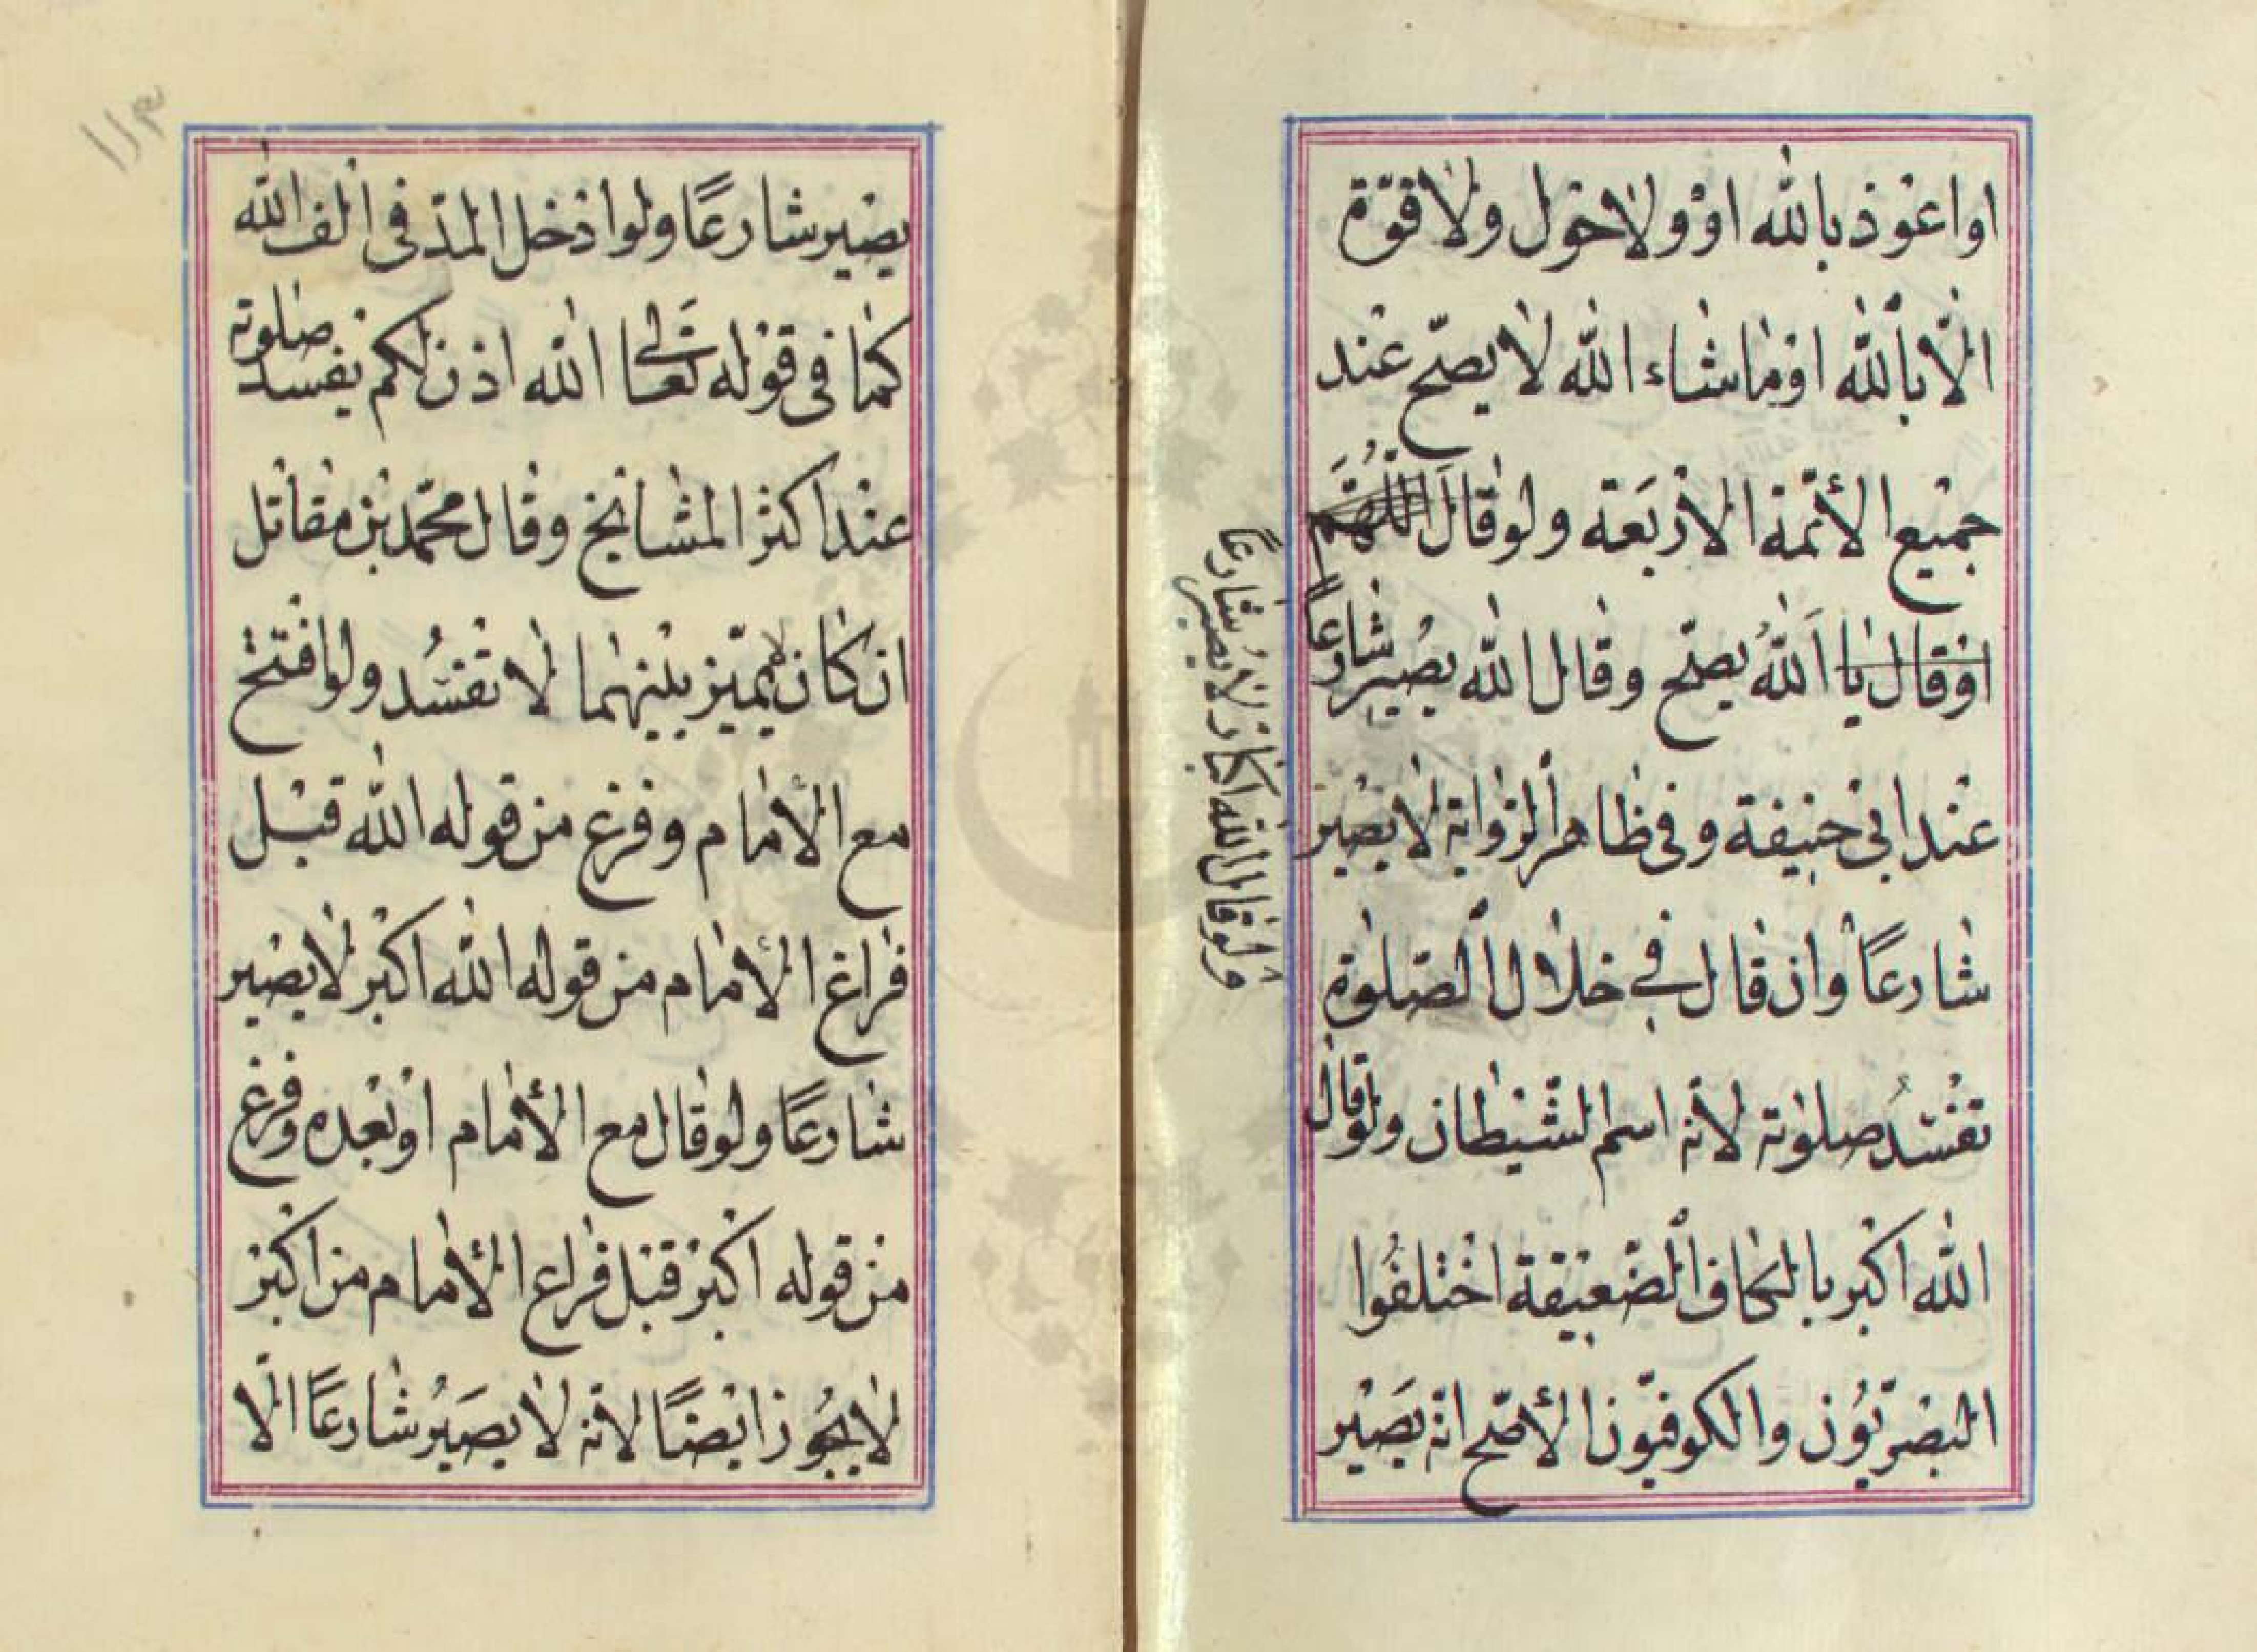 او اعوذ بالله اؤ ولا حول ولا قوّة
الّا بالله او ما شاء الله لا يصحّ عند
جميع الأئمة الاربعة ولو قال اللّٰهُمَّ
او قال يا اَللّٰهُ يصحّ وقال الله يصير شارعاً
عند ابى حنيفة وفى ظاهر الرواية لا يصير
شارعاً وان قال فى خلال الصّلوة
تفسدُ صلوته لانه اسم الشّيطان ولو قال
الله اكبر بالكاف الضّعيفة اختلفُوا
البصريّون والكوفيّون الأصّح انّه يَصير
ولو قال الله اكبار لا يصير شارعاً
١١٣
يصير شارعًا ولو ادخل المدّ فى الف الله
كما فى قوله تعالى الله اذن لكم يفسد صلوته
عند اكثر المشايخ وقال محمّد بن مقاتل
ان كان لا يميّز بينهما لا تفسُد ولو افتتح
مع الأمام وفرغ من قوله الله قبل
فراغ الأمام من قوله الله اكبر لا يصير
شارعًا ولو قال مع الأمام او بعده وفرغ
من قوله اكبر قبل فراغ الأمام من اكبر
لا يجوز ايضًا لانه لا يصَيرُ شارعًا الّا